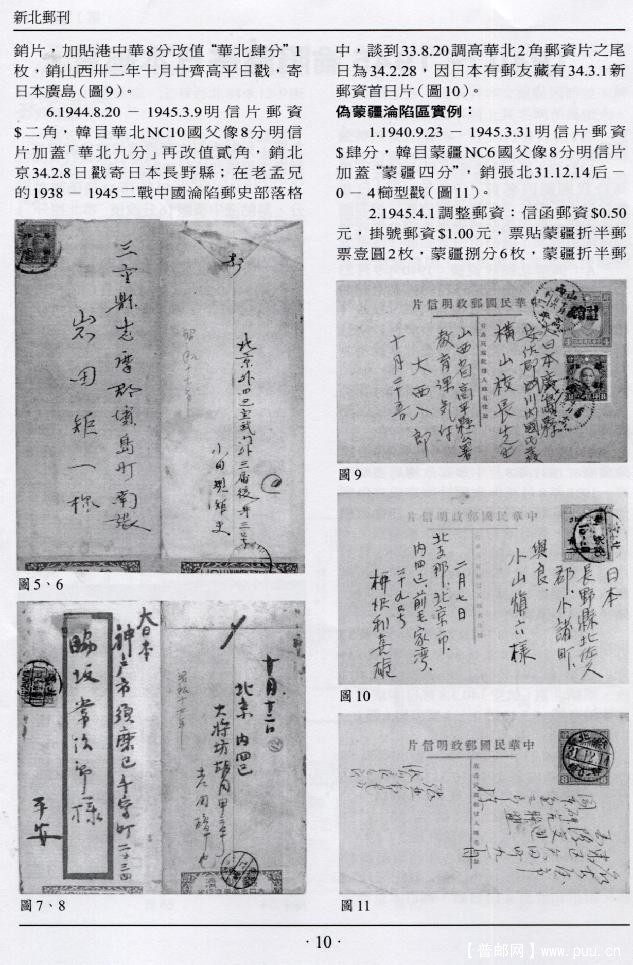 新北郵刊
銷片，加貼港中華8分改值“華北肆分”1
枚，銷山西卅二年十月廿齊高平日戳，寄
日本廣島（圖9）。
6.1944.8.20 － 1945.3.9明信片郵資
$二角，韓目華北NC10國父像8分明信
片加蓋「華北九分」再改值貳角，銷北
京34.2.8日戳寄日本長野縣；在老孟兄
的1938 － 1945二戰中國淪陷郵史部落格
中，談到33.8.20調高華北2角郵資片之尾
日為34.2.28，因日本有郵友藏有34.3.1新
郵資首日片（圖10）。
偽蒙疆淪陷區實例：
1.1940.9.23 － 1945.3.31明信片郵資
$肆分，韓目蒙疆NC6國父像8分明信片
加蓋“蒙疆四分”，銷張北31.12.14后－
0－4櫛型戳（圖11）。
2.1945.4.1調整郵資：信函郵資$0.50
元，掛號郵資$1.00元，票貼蒙疆半折郵
票壹圓2枚，蒙疆捌分6枚，蒙疆折半郵
三重縣志摩郡濱島町南張
岩田矩一様
圖5、6
大日本
神戶市須磨區千守町二ノ三四
脇坂常次郎様
平安
十月十二日
北京內四區
圖7、8
中華民國郵政明信片
大日本廣島縣
橫山校長先生
山西省高平縣公署
教育課気付
大西八郎
圖9
中華民國郵政明信片
日本
長野縣北佐久
郡小諸町
與良
小山慎六様
二月七日
北支那、北京市、
內四區、前毛家灣、
圖10
中華民國郵政明信片
31.12.14
圖11
·10·
【普邮网】www.puu.cn